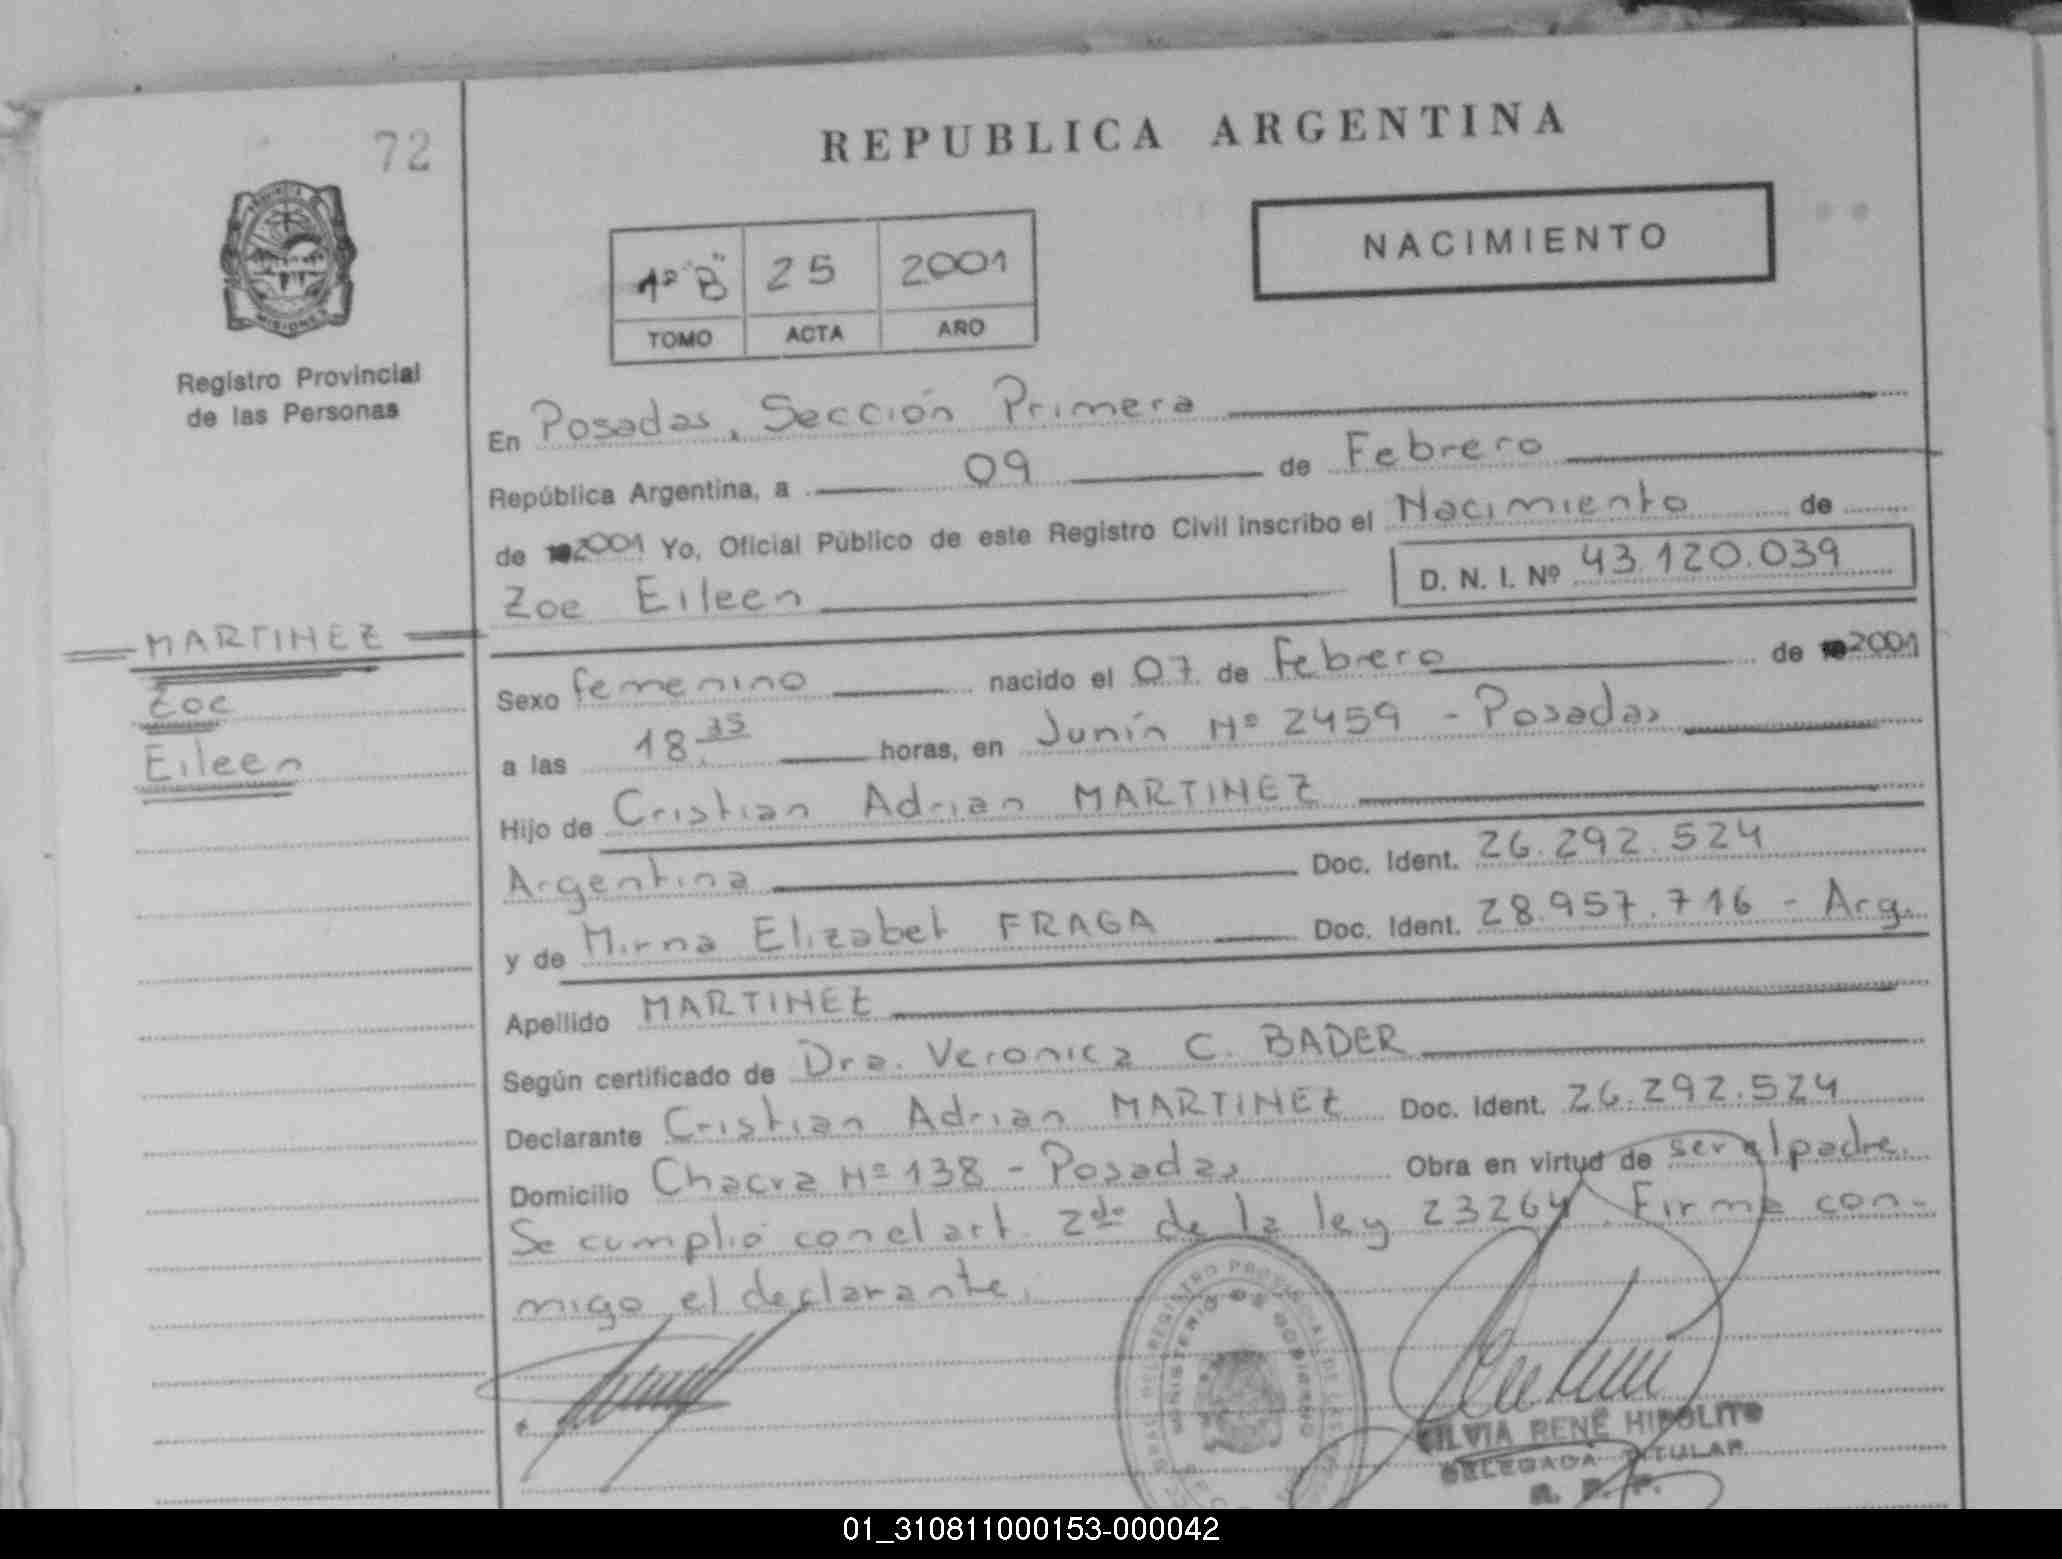 72
PROVINCIA
MISIONES
Registro Provincial
de las Personas
REPUBLICA ARGENTINA
NACIMIENTO
1º "B" 25 2001
TOMO ACTA AÑO
En Posadas, Sección Primera
República Argentina, a 09 de Febrero
de 2001 Yo, Oficial Público de este Registro Civil inscribo el Nacimiento de
Zoe Eileen D. N. I. Nº 43.120.039
MARTINEZ
Zoe
Eileen
Sexo femenino nacido el 07 de Febrero de 2001
a las 18.35 horas, en Junín Nº 2459 - Posadas
Hijo de Cristian Adrian MARTINEZ
Argentina Doc. Ident. 26.292.524
y de Mirna Elizabet FRAGA Doc. Ident. 28.957.716 - Arg.
Apellido MARTINEZ
Según certificado de Dra. Veronica C. BADER
Declarante Cristian Adrian MARTINEZ Doc. Ident. 26.292.524
Domicilio Chacra Nº 138 - Posadas Obra en virtud de ser el padre.
Se cumplió con el art. 2do de la ley 23264. Firma con-
migo el declarante.
REGISTRO PROVINCIAL DE LAS
MINISTERIO DE GOBIERNO
SILVIA RENÉ HIPOLITO
DELEGADA TITULAR
R. P. P.
01_310811000153-000042